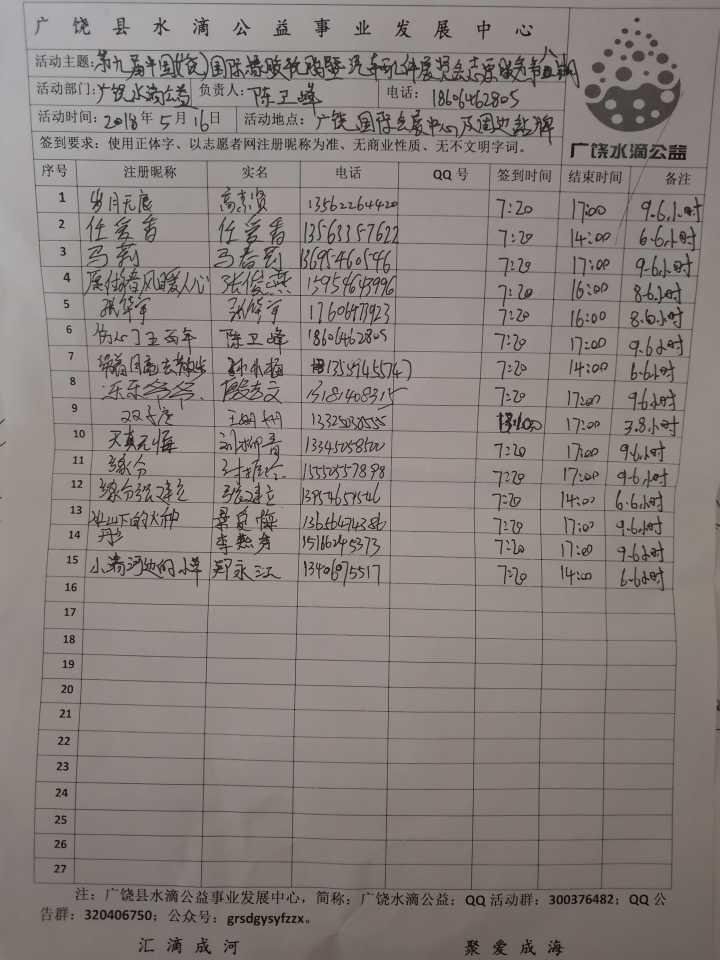 广饶县水滴公益事业发展中心
活动主题:第九届中国(广饶)国际橡胶轮胎暨汽车配件展览会志愿服务
活动部门:广饶水滴公益 负责人:陈卫峰 电话:18606462805
活动时间:2018年5月16日 活动地点:广饶国际会展中心及周边站牌
签到要求:使用正体字、以志愿者网注册昵称为准、无商业性质、无不文明字词。
广饶水滴公益
序号 注册昵称 实名 电话 QQ号 签到时间 结束时间 备注
1 岁月无痕 高志贤 13562264420 7:20 17:00 9.6小时
2 任爱香 任爱香 13563357622 7:20 14:00 6.6小时
3 马莉 马春莉 13695460546 7:20 17:00 9.6小时
4 张俊燕 15954643996 7:20 16:00 8.6小时
5 张华军 张华军 17606473923 7:20 16:00 8.6小时
6 陈卫峰 18606462805 7:20 17:00 9.6小时
7 7:20 14:00 6.6小时
8 乐乐爷爷 7:20 17:00 9.6小时
9 13325030555 17:00 3.8小时
10 天真无悔 13345058500 7:20 17:00 9.6小时
11 缘分 15550557898 7:20 17:00 9.6小时
12 13954657546 7:20 14:00 6.6小时
13 冰山下的火种 7:20 17:00 9.6小时
14 7:20 17:00 9.6小时
15 小清河边的小草 郑永江 13406075517 7:20 14:00 6.6小时
16
17
18
19
20
21
22
23
24
25
26
27
注:广饶县水滴公益事业发展中心,简称:广饶水滴公益;QQ活动群:300376482;QQ公
告群:320406750;公众号:grsdgysyfzzx。
汇滴成河 聚爱成海